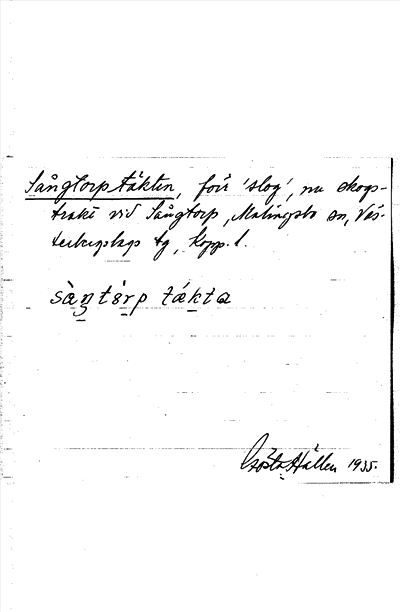 Sångtorptäkten, förr 'slog', nu skogs-
trakt vid Sångtorp, Malingsbo sn, Väs-
terbergslags tg, Kopp. l.
sàŋtórp tákta
Gösta Hållen 1935.